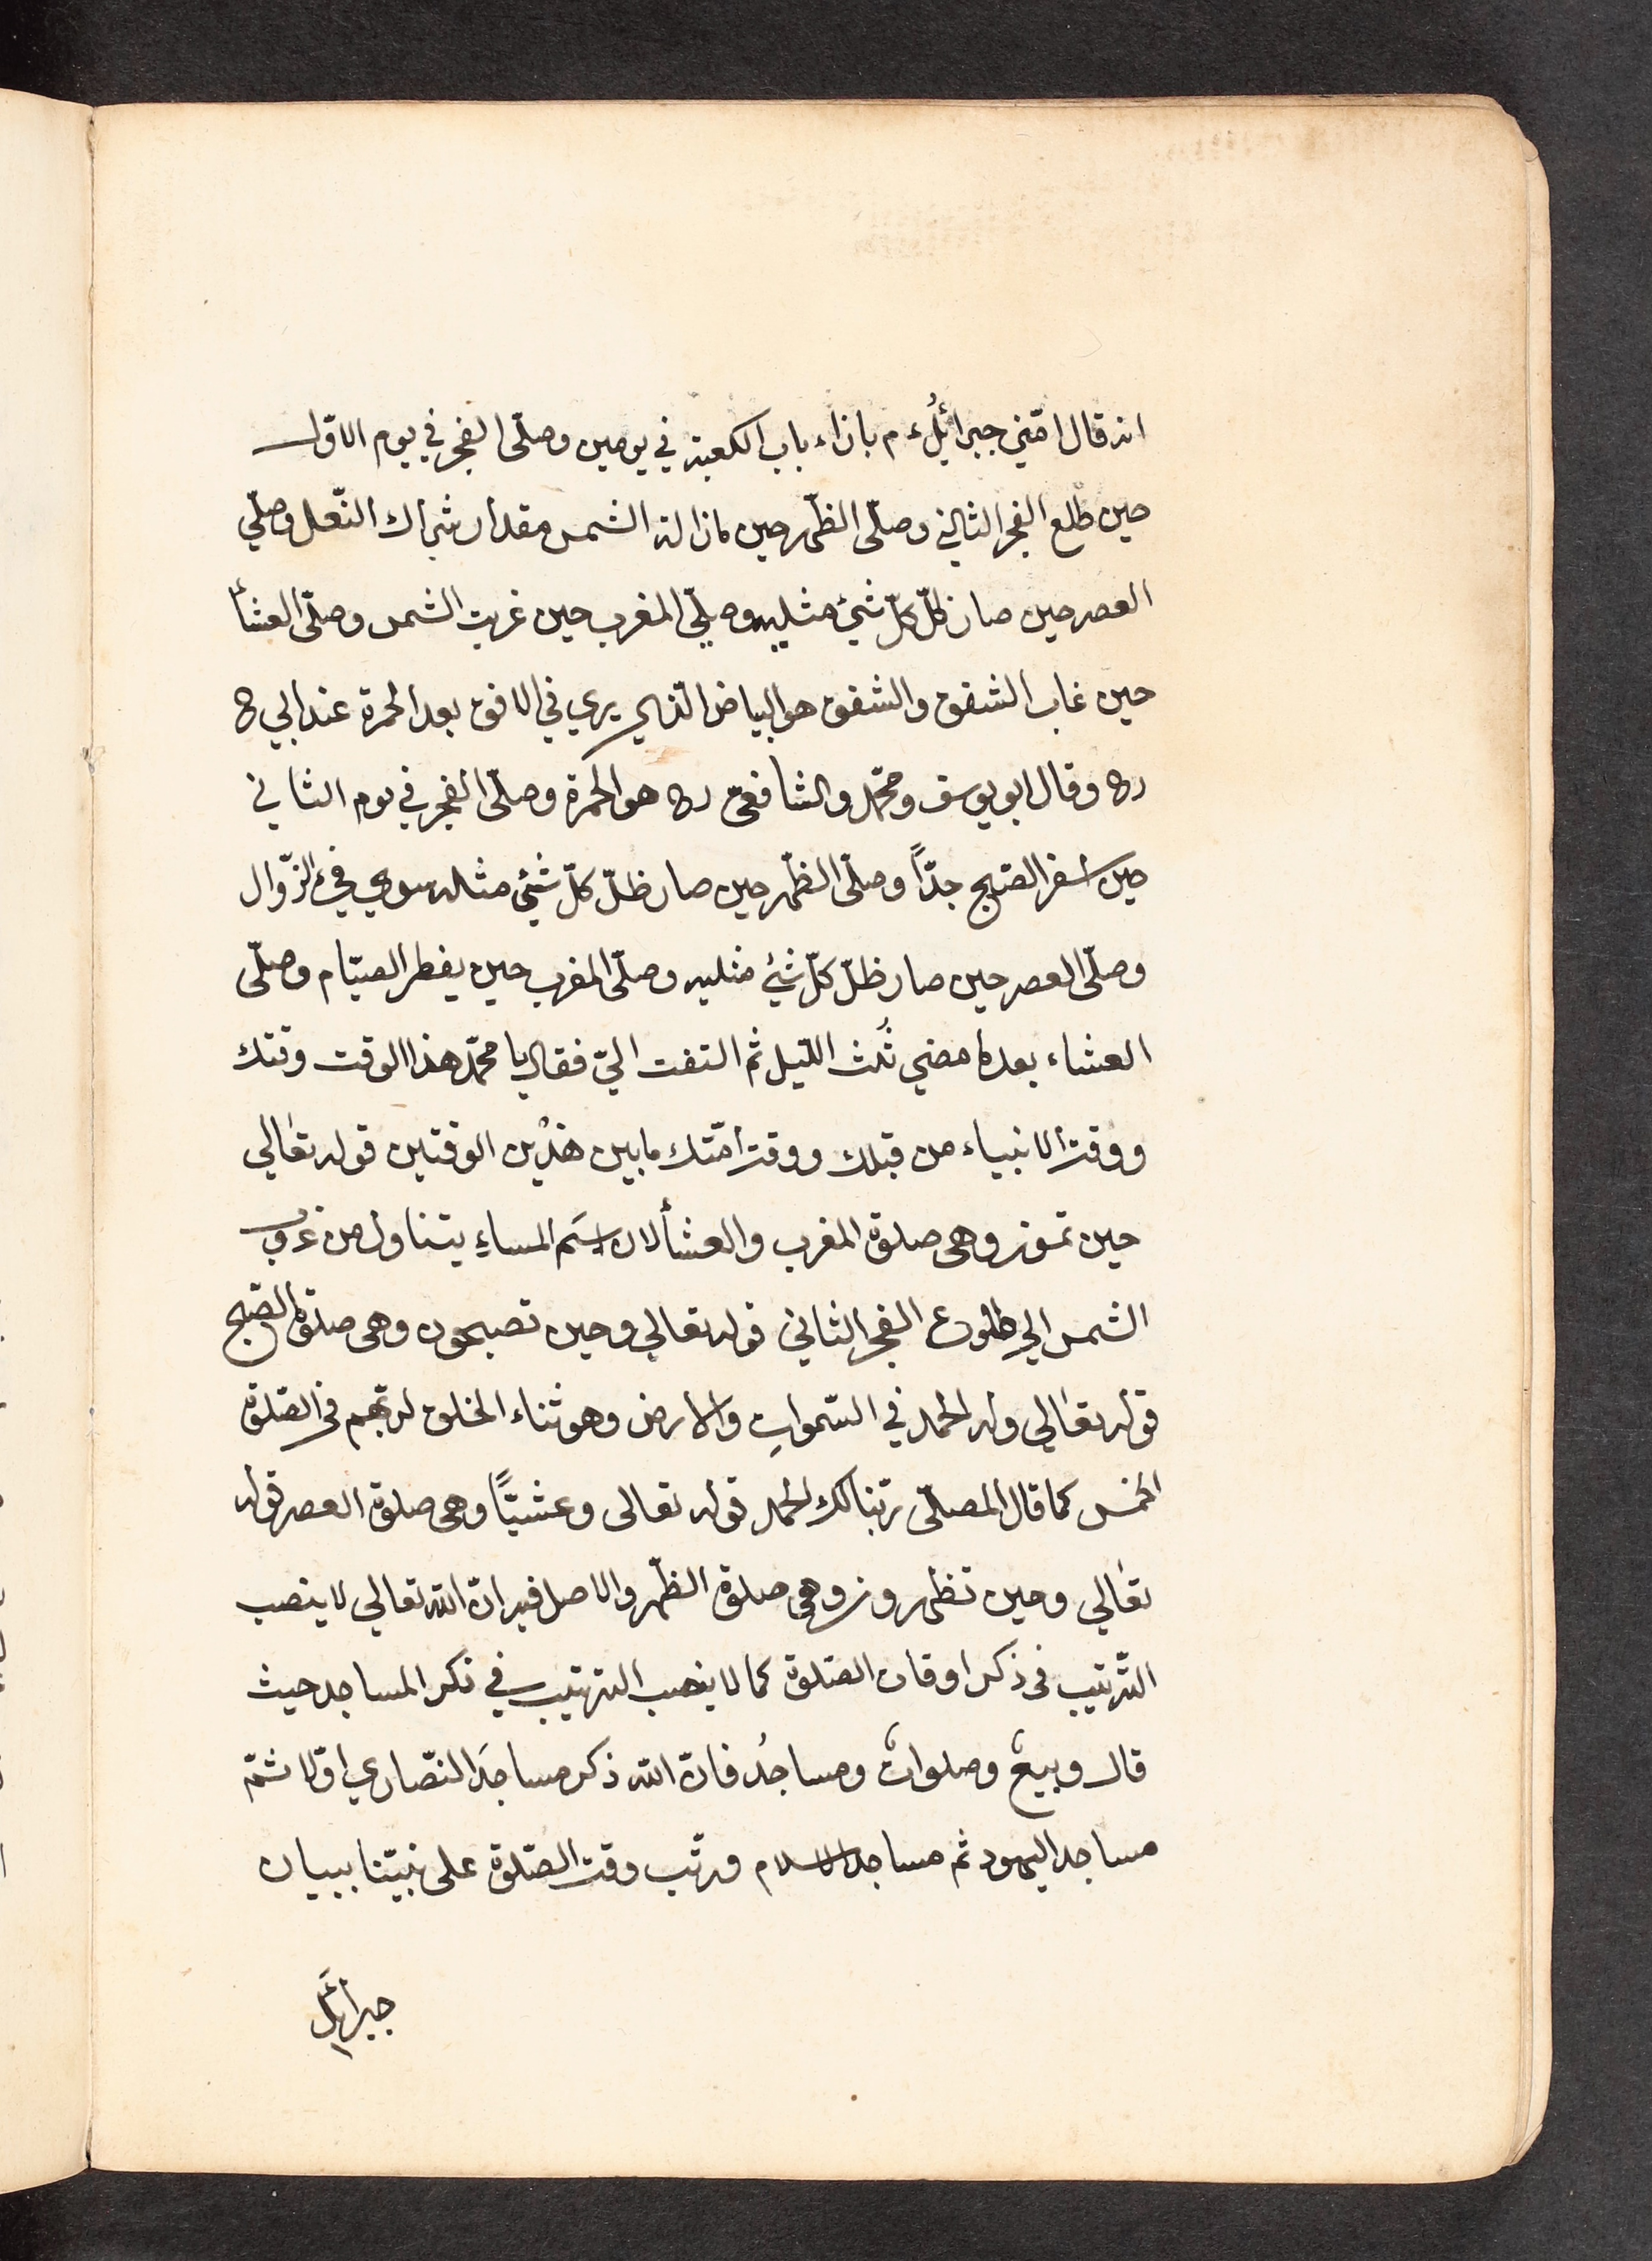 انه قال امّني جبرائلُ ء م بازاء باب الكعبة في يومين وصلّى الفجر في يوم الاوّل
حين طلع الفجر الثاني وصلّى الظّهر حين مازالة الشمس مقدار شراك النّعل وصلّي
العصر حين صار ظلّ كلّ شئ مثليه وصلّي المغرب حين غربت الشمس وصلّى العشأ
حين غاب الشفق والشفق هو البياض الّذي يري في الافق بعد الحمرة عند ابي ح
رح وقال ابو يوسف ومحمّد والشافعىّ رح هو الحمرة وصلّى الفجر في يوم الثاني
حين اسفر الصّبح جدّاً وصلّى الظّهر حين صار ظلّ كلّ شئي مثله سوي فئ الزّوال
وصلّى العصر حين صار ظلّ كلّ شئي مثليه وصلّى المغرب حين يفطر الصيّام وصلّى
العشاء بعد ما مضي ثُلث اللّيل ثم التفت اليّ فقال يا محمّد هذا الوقت وقتك
ووقت الانبياء من قبلك ووقت امّتك ما بين هذين الوقتين قوله تعالي
حين تمسون وهى صلوة المغرب والعشأ لان اسَم المساءِ يتناول من غروب
الشمس الي طلوع الفجر الثاني قوله تعالي وحين تصبحون وهى صلوة الصّبح
قوله تعالي وله الحمد في السّمواتِ والارض وهو ثناء الخلق لربّهم فى الصّلوة
الخمس كما قال المصلّى ربّنا لك الحمد قوله تعالى وعشيّاً وهى صلوة العصر قوله
تعالي وحين تظهرون وهى صلوة الظّهر والاصل فيه انّ الله تعالي لا ينصب
التّرتيب فى ذكر اوقات الصّلوة كما لا ينصب الترتيب في ذكر المساجد حيث
قال وبيعٌ وصلواتٌ ومساجدُ فانّ الله ذكر مساجدَ النّصاري اوّلا ثمّ
مساجد اليهود ثم مساجد الاسلام ورتّب وقت الصّلوة على نبيّنا ببيان
جبرائل